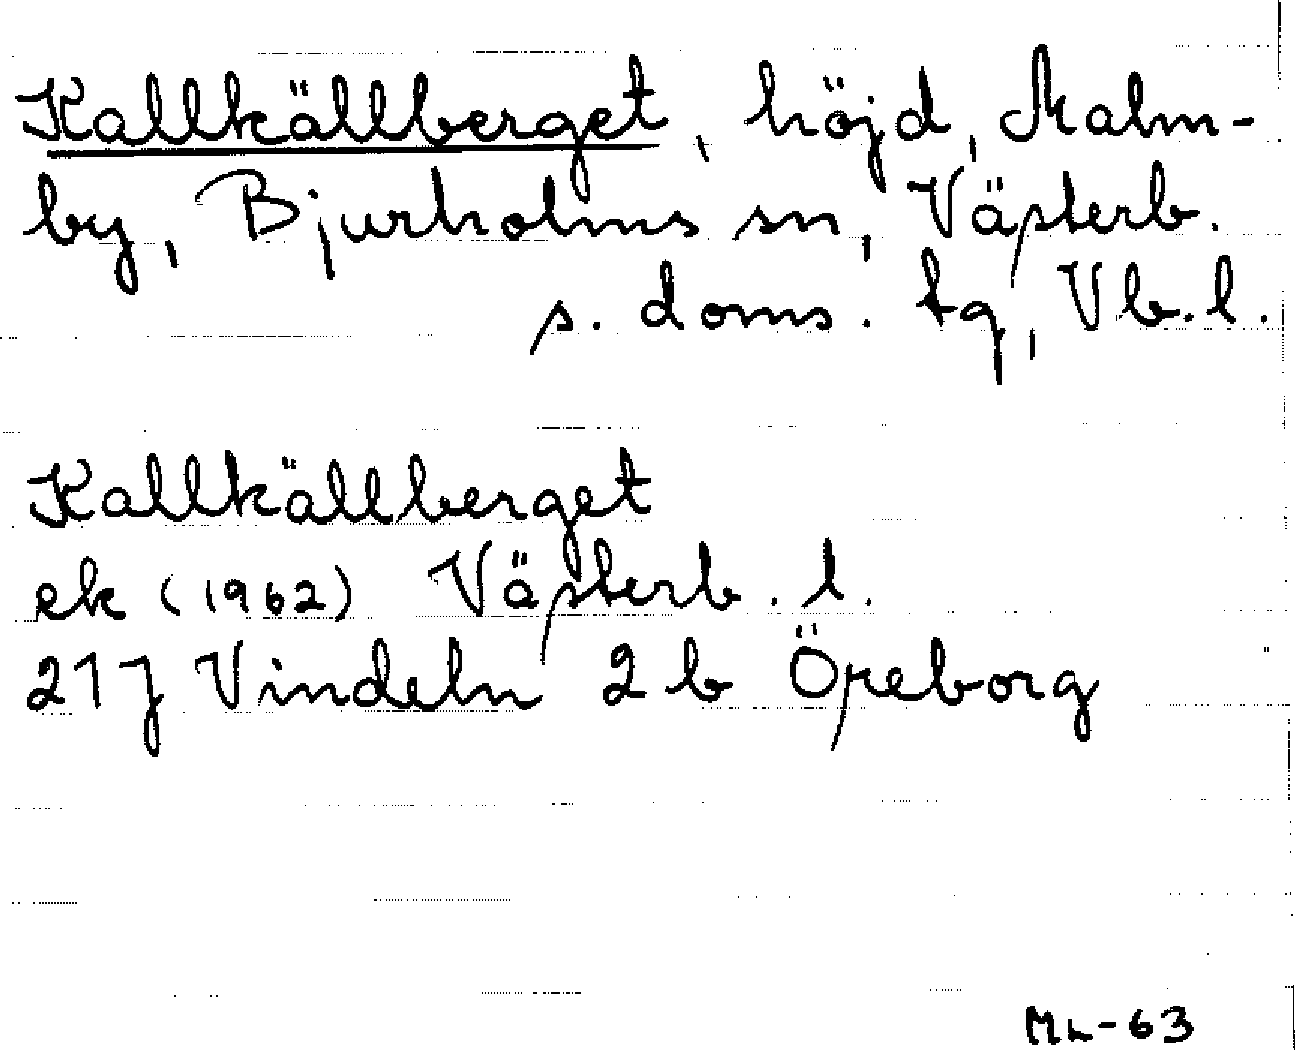 Kallkällberget, höjd, Malm-
by, Bjurholms sn, Västerb.
s. doms. tg, Vb.l.
Kallkällberget
ek (1962) Västerb. l.
21J Vindeln 2 b Öreborg
ML-63